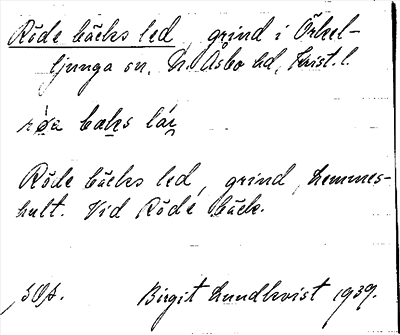 Röde bäcks led, grind i Örkel-
ljunga sn, N. Åsbo hd, Krist. l.
bæks
Röde bäcks led, grind, Lemmes-
hult. Vid Röde bäck.
Birgit Lundkvist 1939.